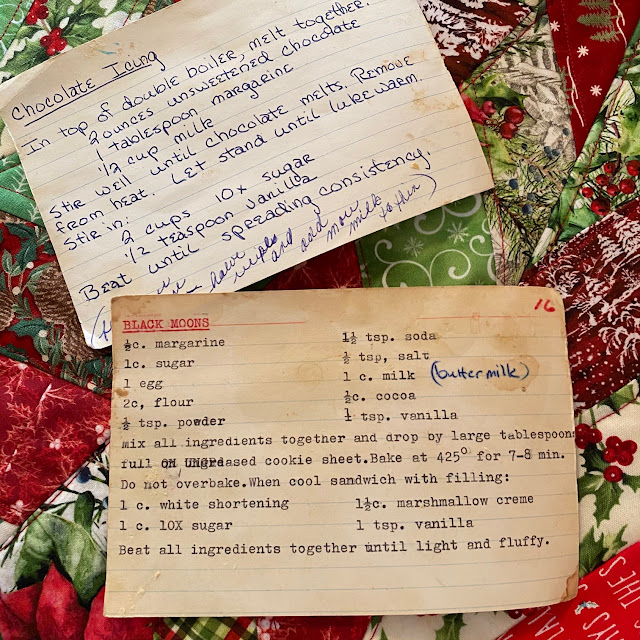 Chocolate Icing
In top of double boiler, melt together:
2 ounces unsweetened chocolate
1 tablespoon margarine
1/2 cup milk
Stir well until chocolate melts. Remove
from heat. Let stand until lukewarm.
Stir in:
2 cups 10x sugar
1/2 teaspoon vanilla
Beat until spreading consistency.
and add more
milk to thin)
16
BLACK MOONS
½c. margarine 1½ tsp. soda
1c. sugar ½ tsp, salt
1 egg 1 c. milk (buttermilk)
2c, flour ½c. cocoa
½ tsp. powder 1 tsp. vanilla
Mix all ingredients together and drop by large tablespoons
full on ungreased cookie sheet.Bake at 425° for 7-8 min.
Do not overbake.When cool sandwich with filling:
1 c. white shortening 1½c. marshmallow creme
1 c. 10X sugar 1 tsp. vanilla
Beat all ingredients together until light and fluffy.
THIS